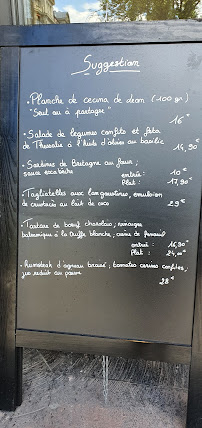 Suggestion
• Planche de cecina de Leon (100 gr)
"Seul ou à partager"
16 €
• Salade de légumes confits et feta
de Thessalie à l'huile d'olives au basilic
14,90 €
• Sardines de Bretagne au four,
sauce escabèche
entrée : 10 €
Plat : 17,90 €
• Tagliatelles aux langoustines, émulsion
de crustacés au lait de coco
29 €
• Tartare de bœuf charolais, vinaigre
balsamique à la truffe blanche, crème de fenouil
entrée : 16,90 €
Plat : 24,00 €
• Rumsteak d'agneau braisé, tomates cerises confites,
jus réduit au poivre
28 €